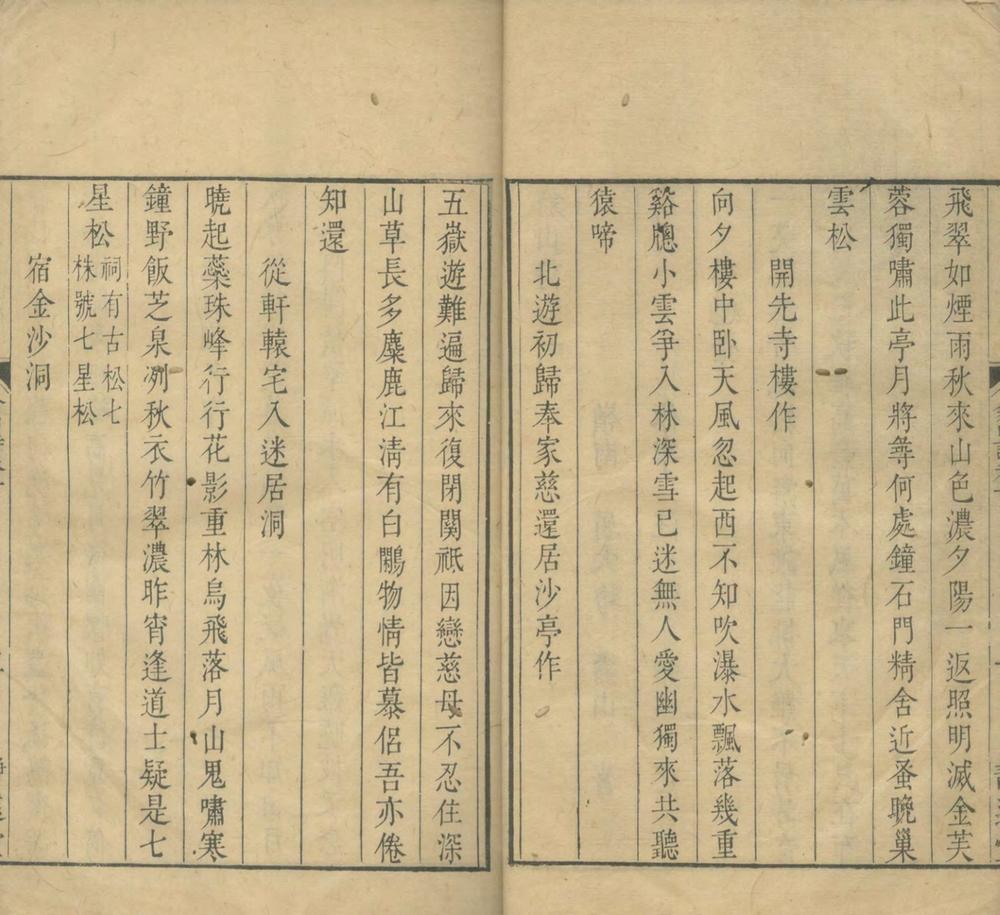 飛翠如煙雨秋來山色濃夕陽一返照明滅金芙
蓉獨嘯此亭月將尋何處鐘石門精舍近蚤晚巢
雲松
開先寺樓作
向夕樓中卧天風忽起西不知吹瀑水飄落幾重
谿牕小雲爭入林深雪已迷無人愛幽獨來共聽
猿啼
北遊初歸奉家慈還居沙亭作
五嶽遊難遍歸來復閉關祗因戀慈母不忍住深
山草長多麋鹿江清有白鷴物情皆慕侶吾亦倦
知還
從軒轅宅入迷居洞
曉起蘂珠峰行行花影重林烏飛落月山鬼嘯寒
鐘野飯芝泉冽秋衣竹翠濃昨宵逢道士疑是七
星松祠有古松七
株號七星松
宿金沙洞